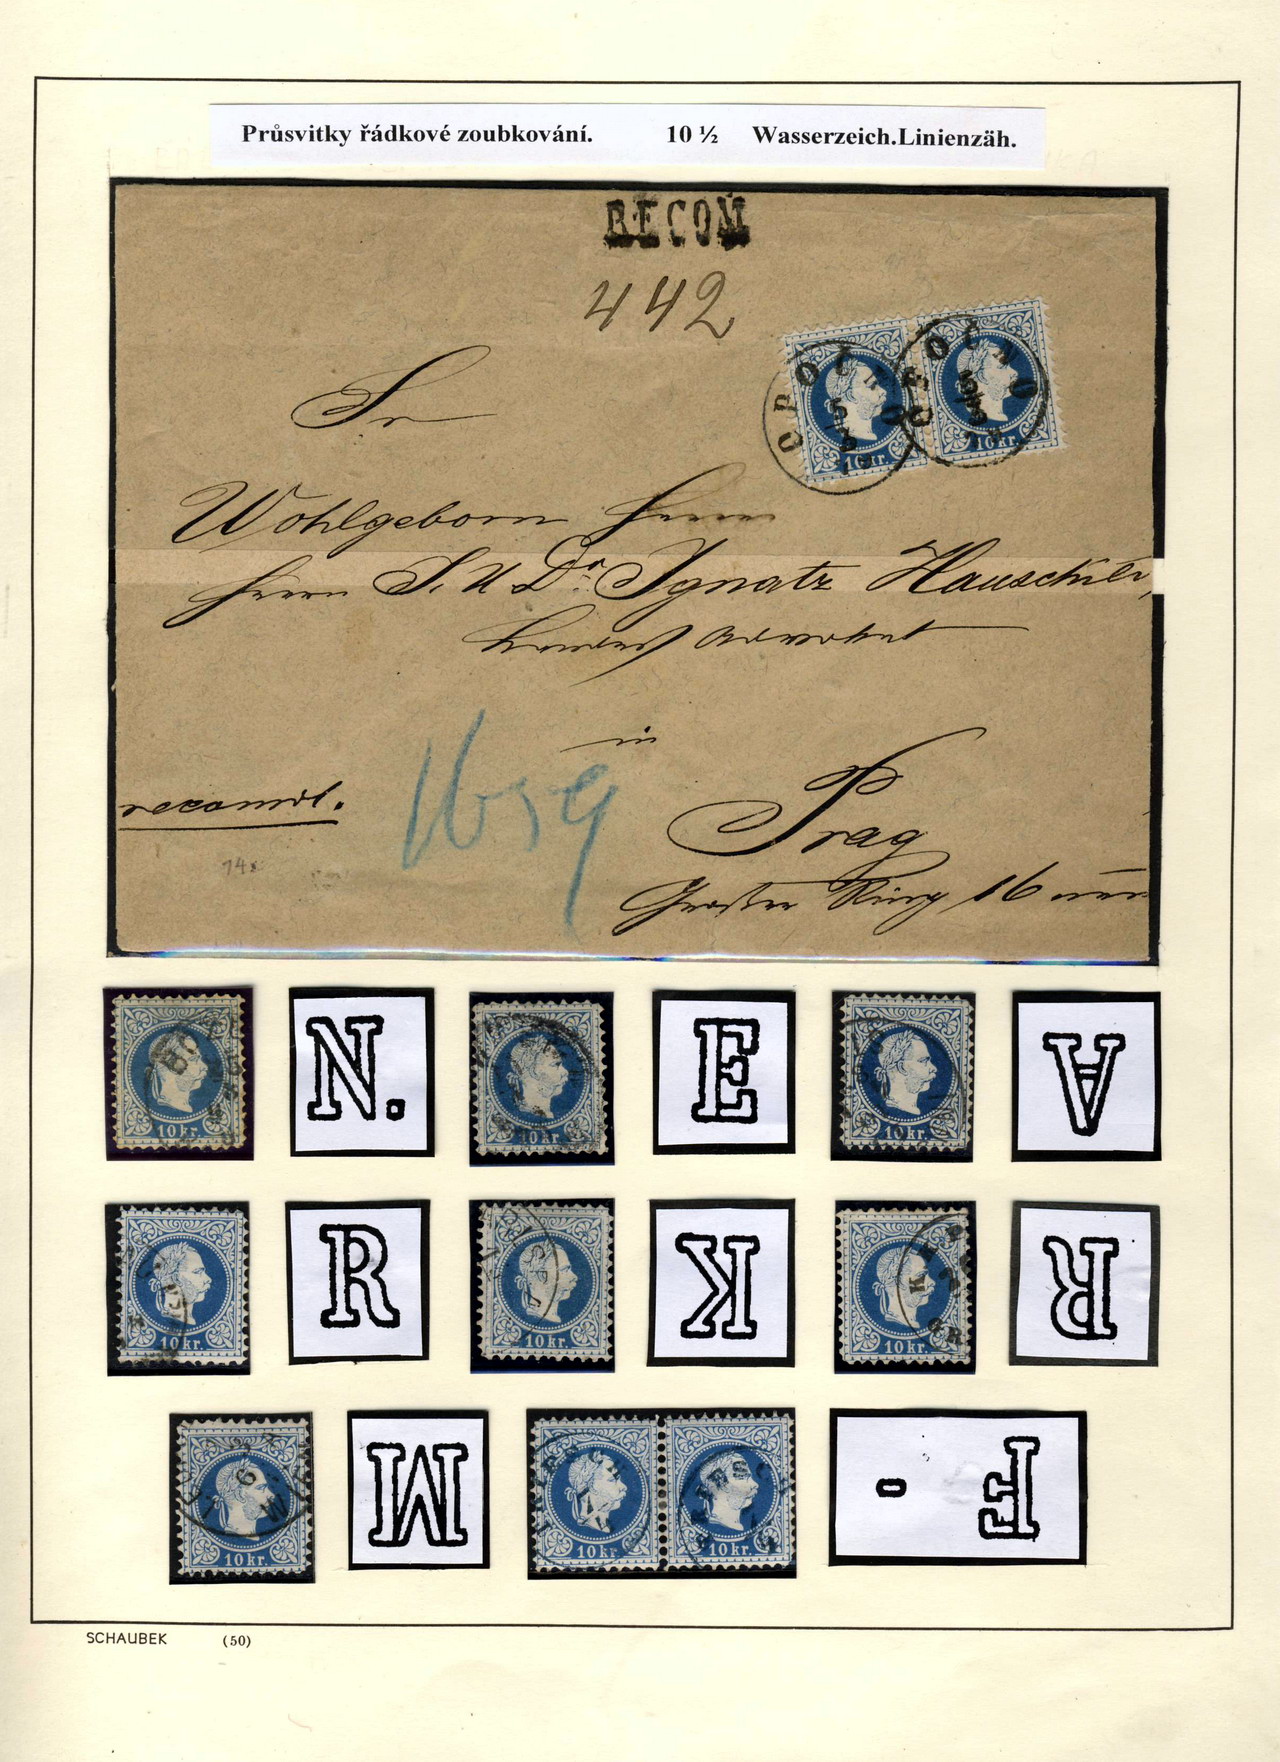 Průsvitky řádkové zoubkování. 10 ½ Wasserzeich.Linienzäh.
RECOM
442
10 kr. 10 kr.
Wohlgeborn Herrn
Herrn J. U. Dr. Ignatz
Landes Advokat
in
1659
recomdt.
Prag
Großer Ring 16 neu
10 kr. N. 10 kr. E 10 kr. A
10 kr. R 10 kr. K 10 kr. R
WIEN
10 kr. M 10 kr. 10 kr. F
SCHAUBEK (50)